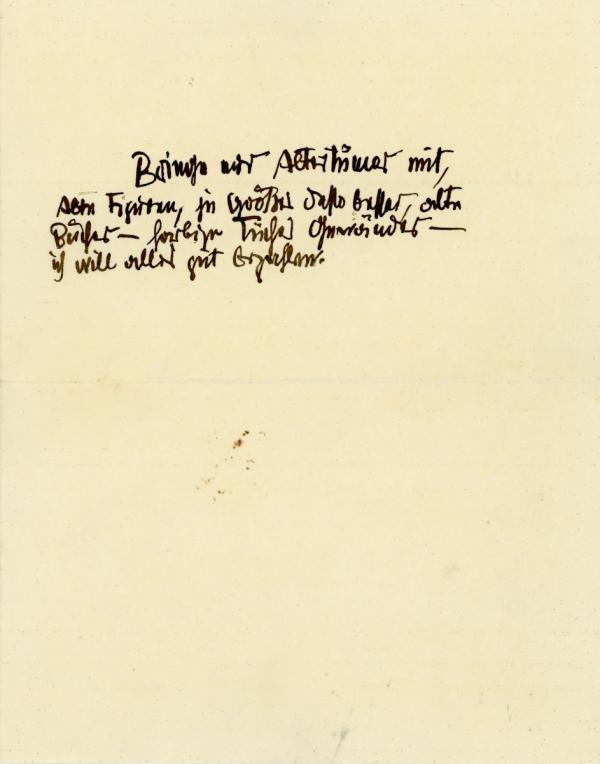 Bringe mir Altertümer mit,
alte Figuren, je größer desto besser, alte
Bücher – farbige Tücher Gewänder –
ich will alles gut bezahlen.